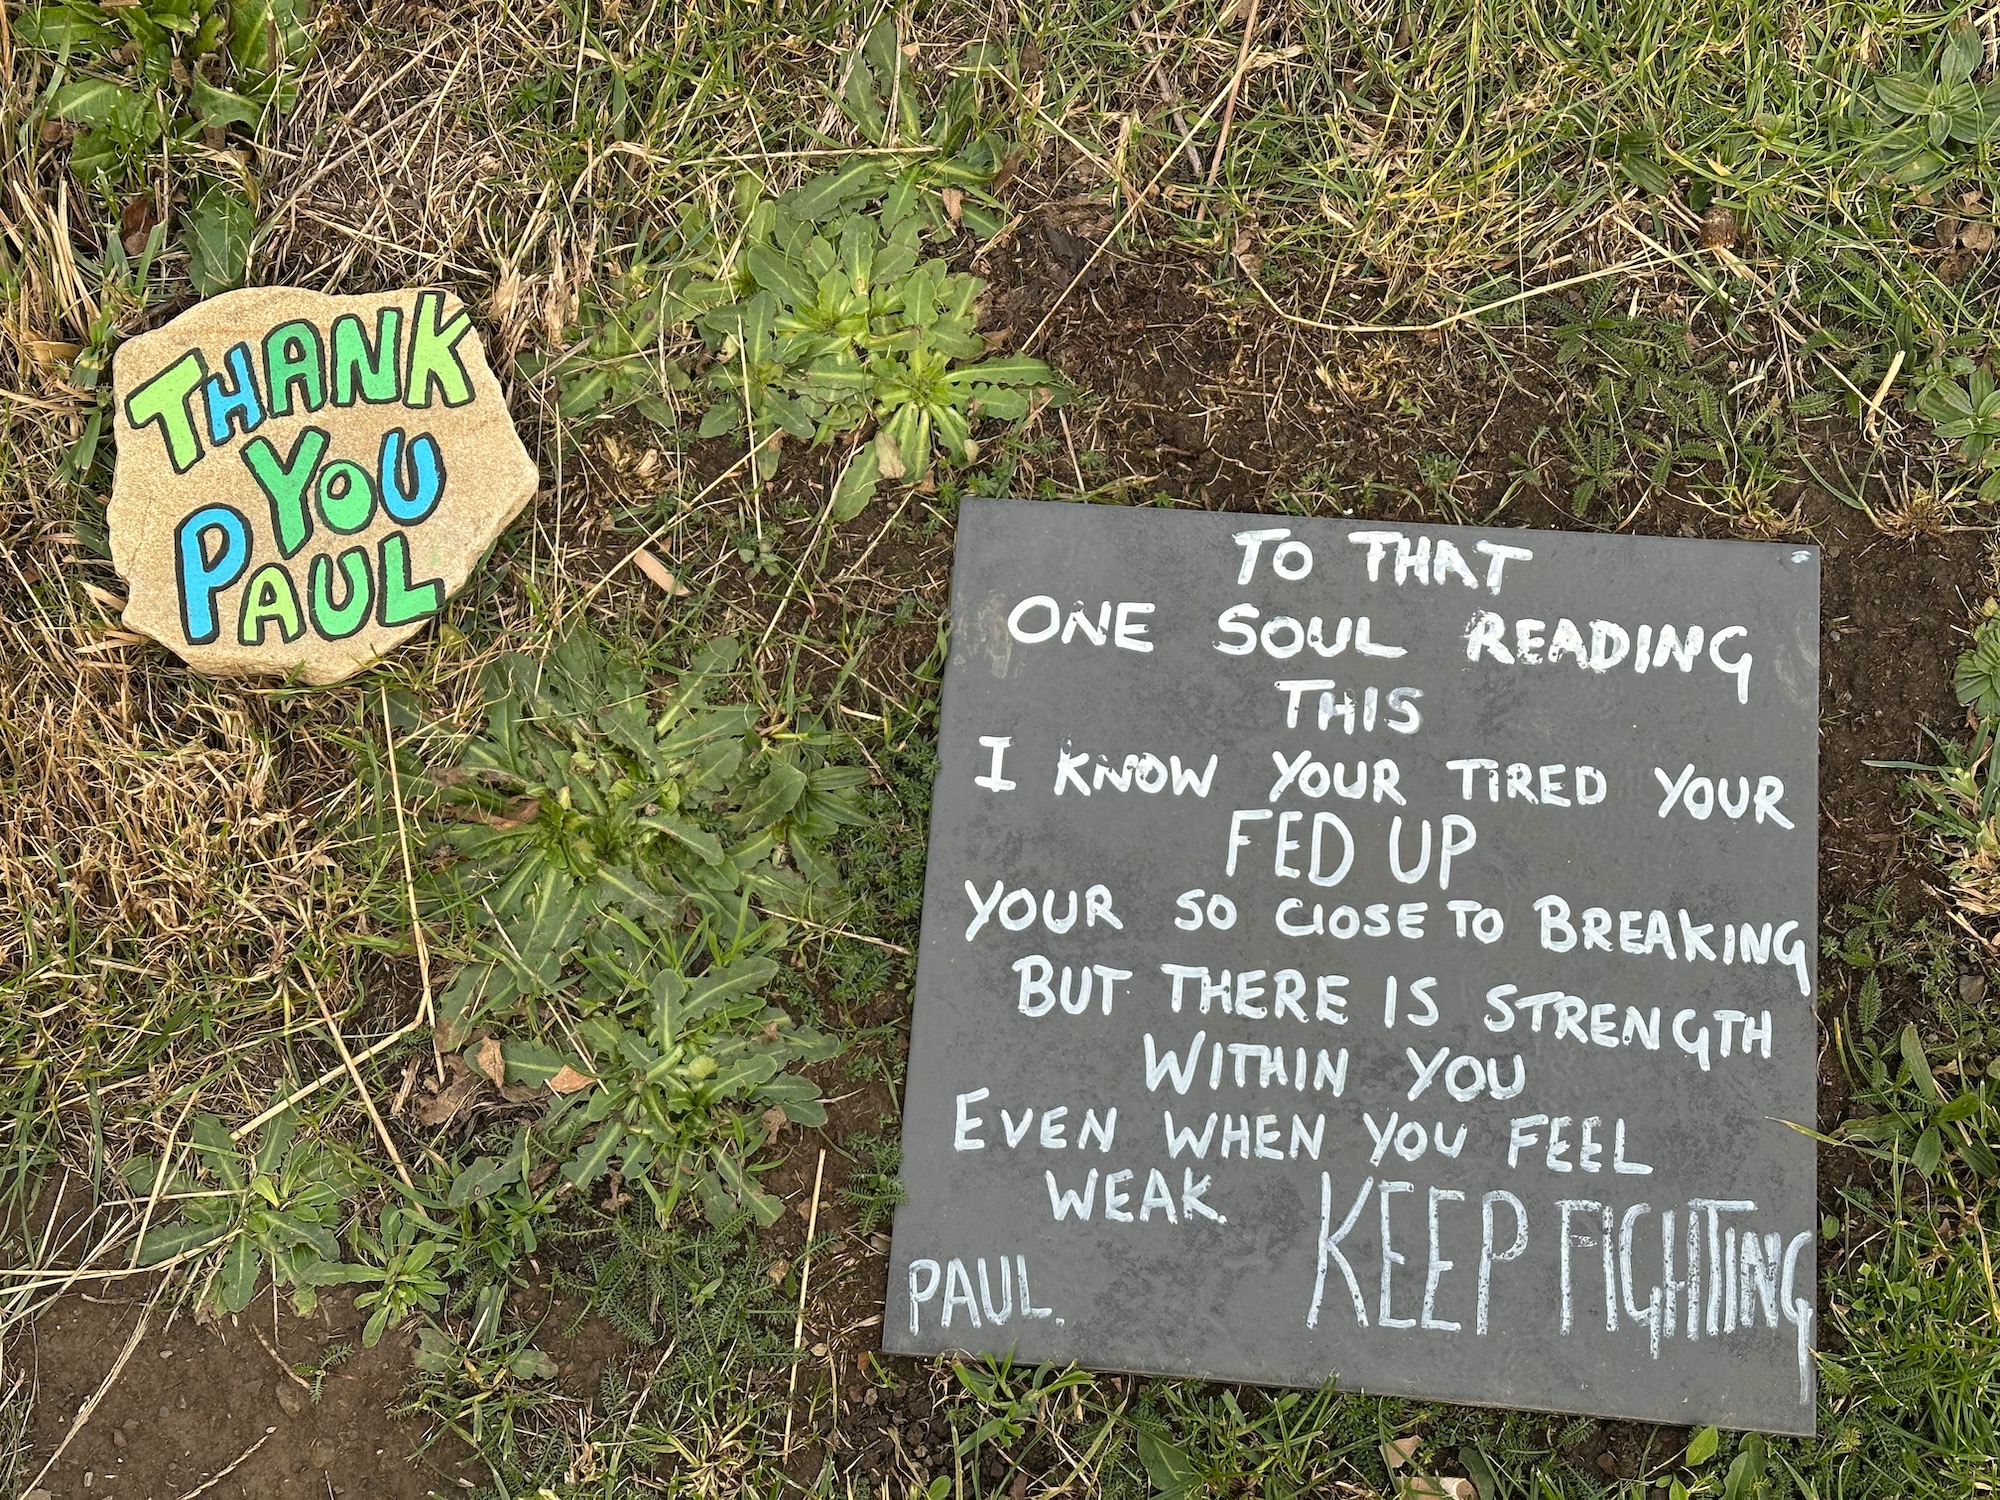 THANK
YOU
PAUL
TO THAT
ONE SOUL READING
THIS
I KNOW YOUR TIRED YOUR
FED UP
YOUR SO ClOSE TO BREAKING
BUT THERE IS STRENGTH
WITHIN YOU
EVEN WHEN YOU FEEL
WEAK. KEEP FIGHTING
PAUL.